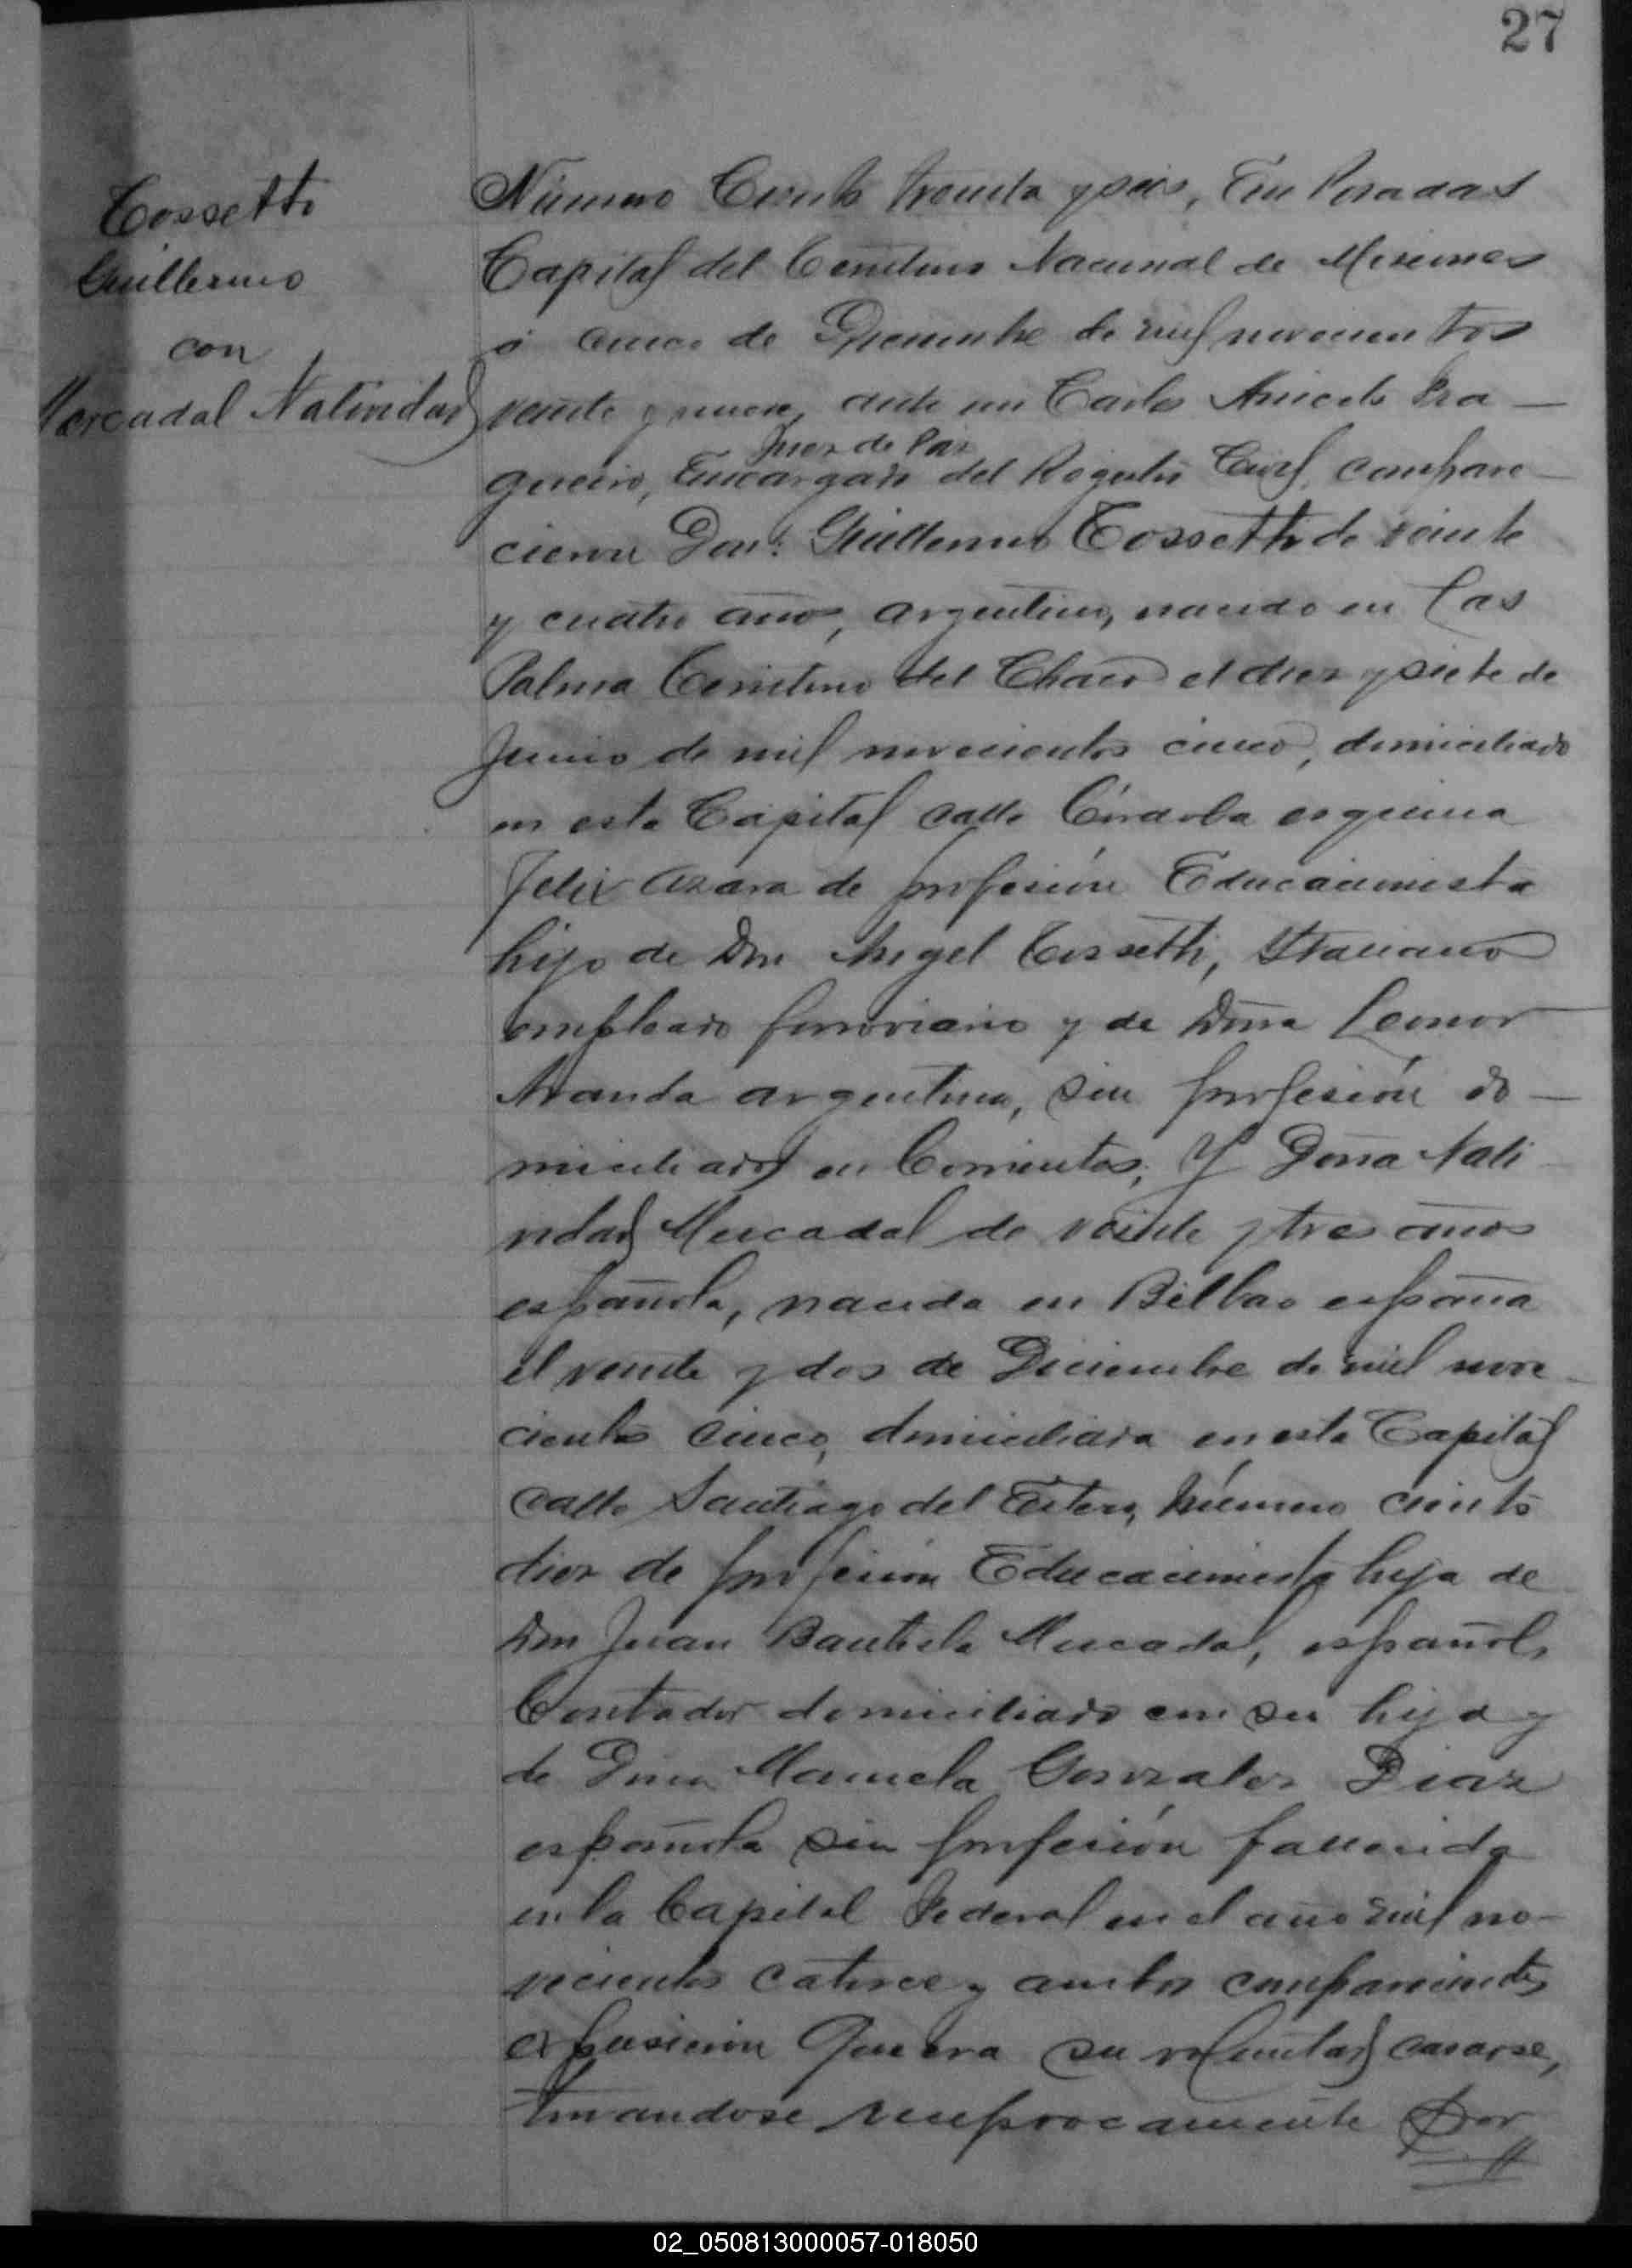 27
Tossetti
Guillermo
con
Mercadal Natividad
Número Ciento treinta y seis, En Posadas
Capital del Territorio Nacional de Misiones
á cinco de Diciembre de mil novecientos
veinte y nueve, ante mi Carlos Aniceto Fra—
gueiro, Juez de Paz Encargado del Registro Civil, compare—
cieron Don: Guillermo Tossetti de veinte
y cuatro años, argentino, nacido en Las
Palma Territorio del Chaco el diez y siete de
Junio de mil novecientos cinco, domiciliado
en esta Capital calle Córdoba esquina
Felix Azara de profesión Educacionista
hijo de Don Angel Tossetti, Italiano
empleado ferroviario y de Doña Leonor
Aranda argentina, sin profesión do—
miciliados en Corrientes; Y Doña Nati
vidad Mercadal de veinte y tres años
española, nacida en Bilbao españa
el veinte y dos de Diciembre de mil nove—
cientos cinco, domiciliada en esta Capital
calle Santiago del Estero, número ciento
diez de profesión Educacionista hija de
Don Juan Bautista Mercadal, español,
Contador domiciliado con su hija y
de Doña Manuela Gonzalez Diaz
española sin profesión fallecida
en la Capital Federal en el año mil no—
vecientos catorce y ambos comparecientes
expusieron Que era su voluntad casarse,
tomandose reciprocamente por
02_050813000057-018050